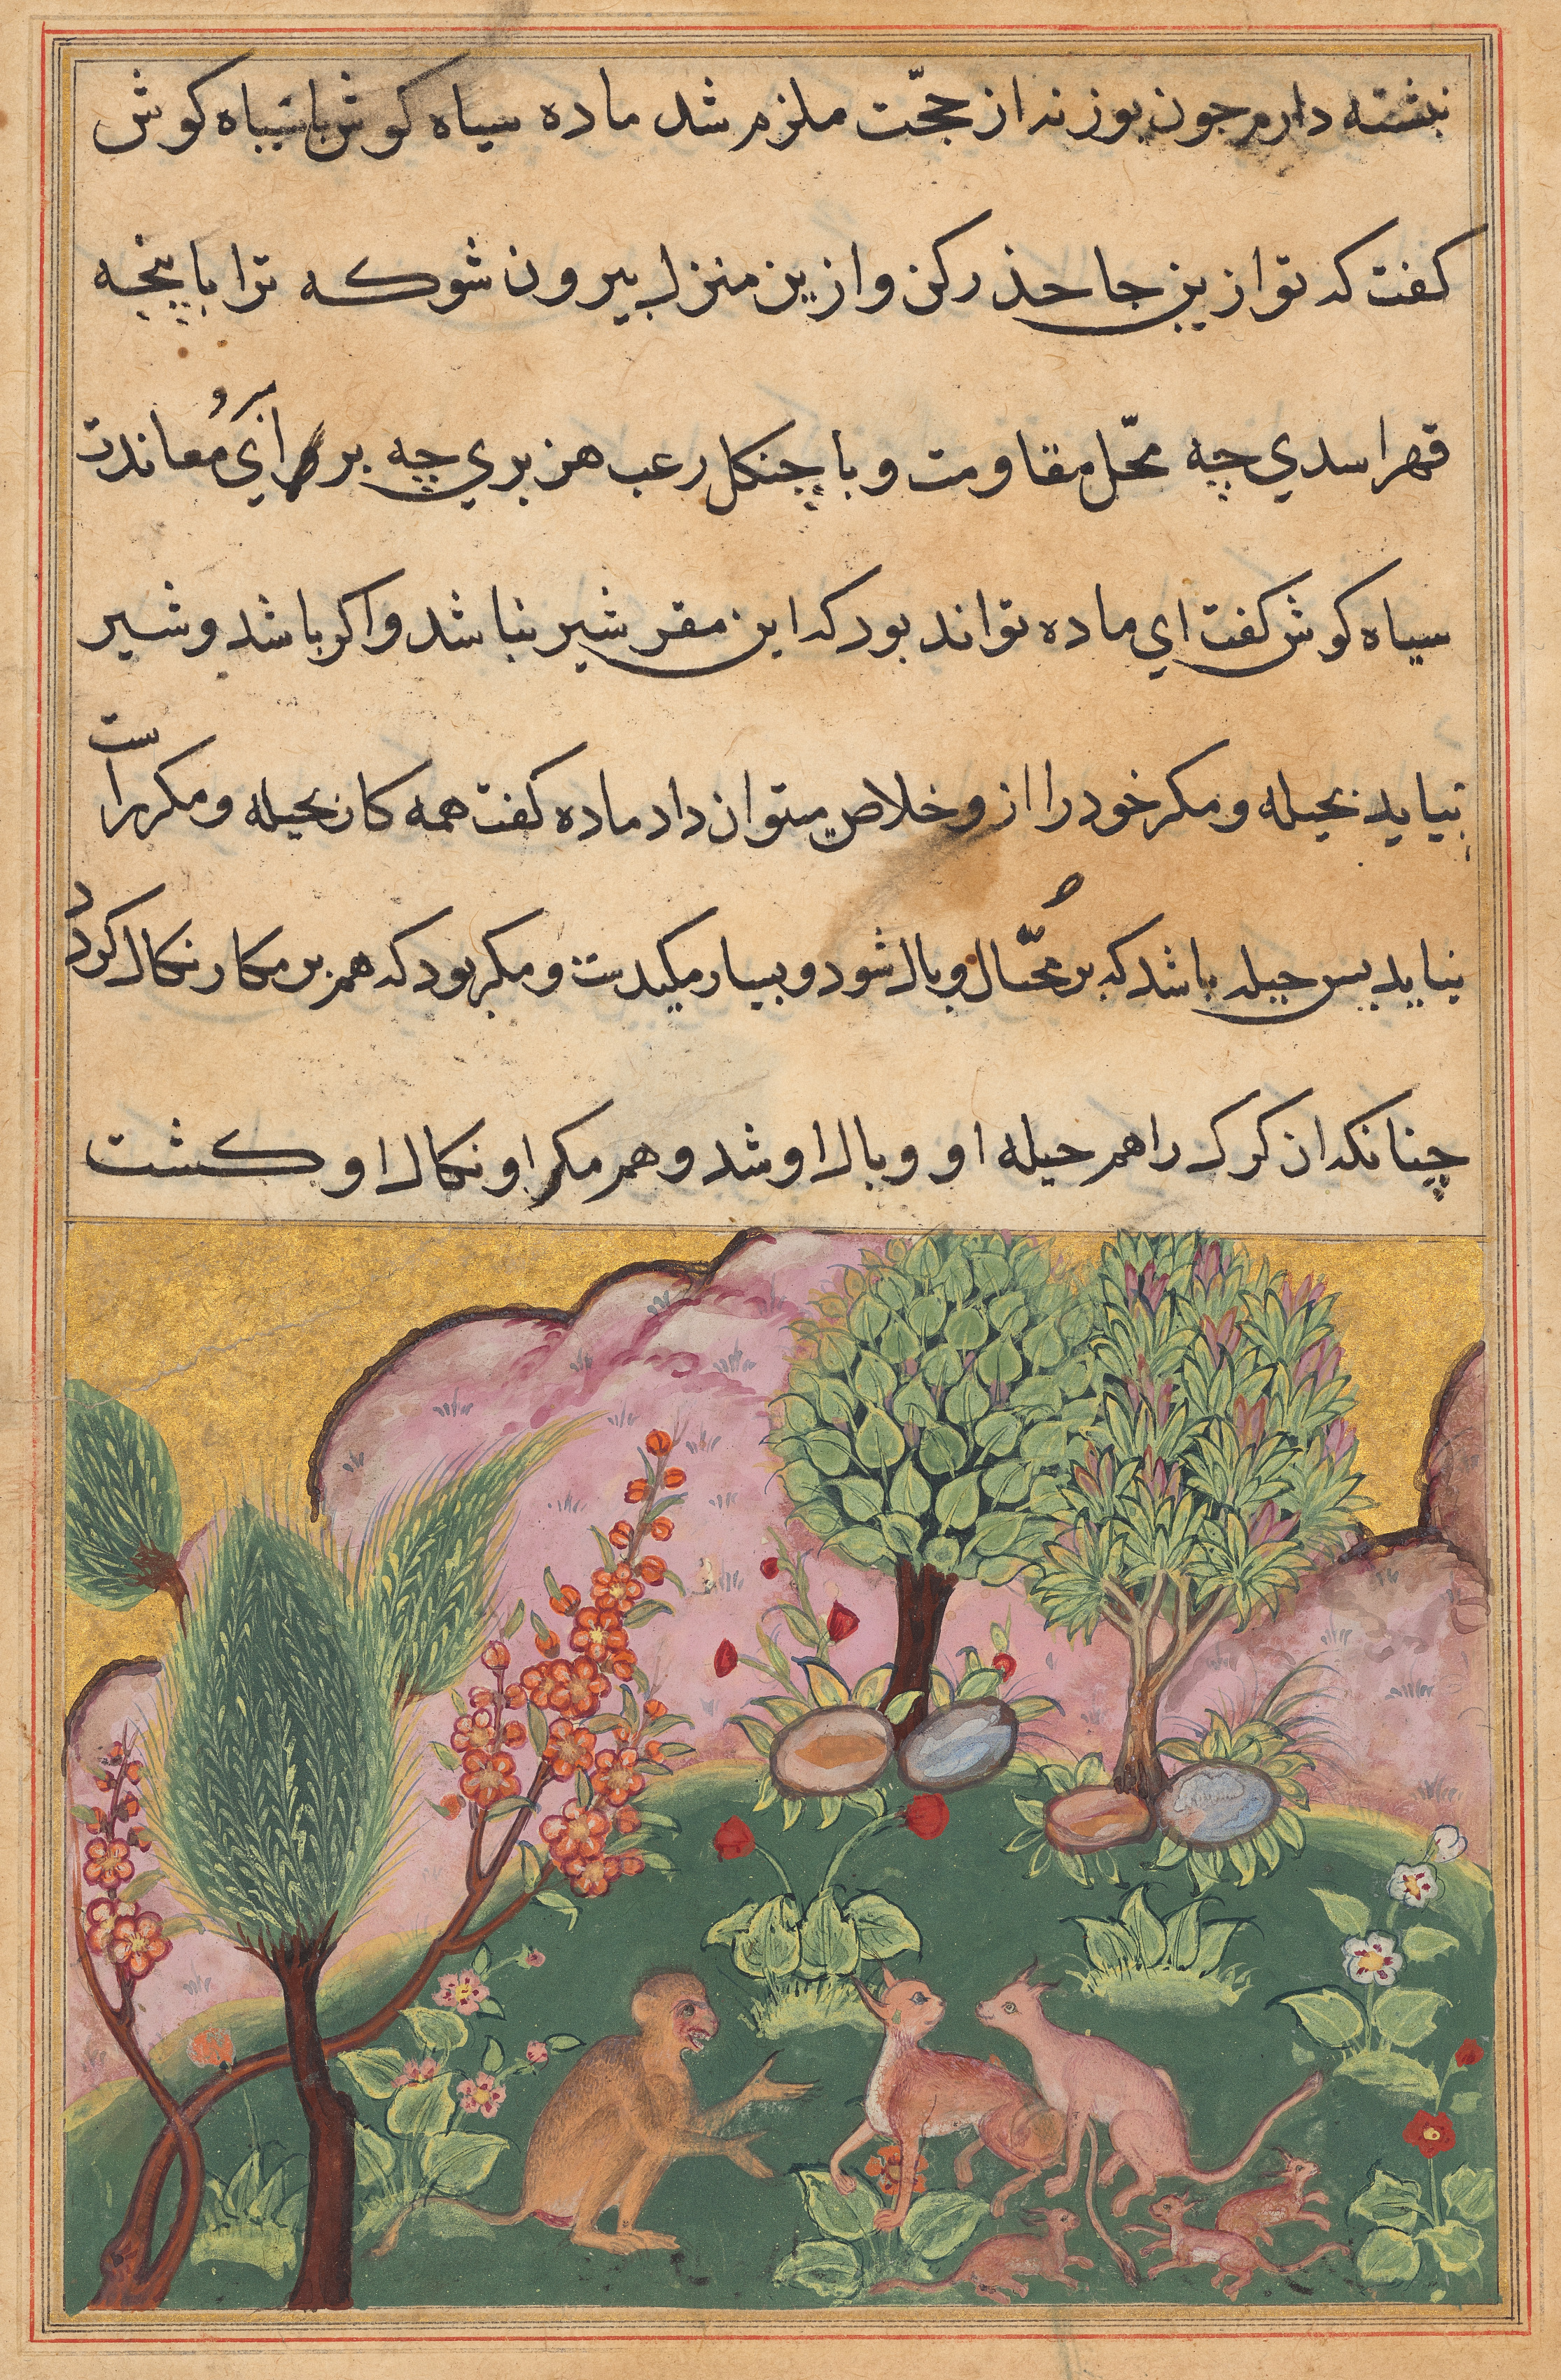 نبشته دارم جون بوزنه از حجّت ملزم شد ماده سیاه کوش با سیاه کوش
کفت که تو ازین جا حذر کن و ازین منزل بیرون شو که ترا با پنجه
قهر اسدي چه محّل مقاومت و با چنکل رعب هزبري چه بر سر و آي مُعاندت
سیاه کوش کفت اي ماده تواند بود که این مقر شیر نباشد و اکر باشد و شیر
بیاید بحیله و مکر خود را از و خلاص میتوان داد ماده کفت همه کار بحیله و مکر راست
نیاید بس حیله باشد که بر مُحّتال وبال شود و بسیار مکیدت و مکر بود که هم بر مکار نکال کردد
چنانکه ان کرک را هم حیله او وبال او شد و هم مکر او نکال او کشت